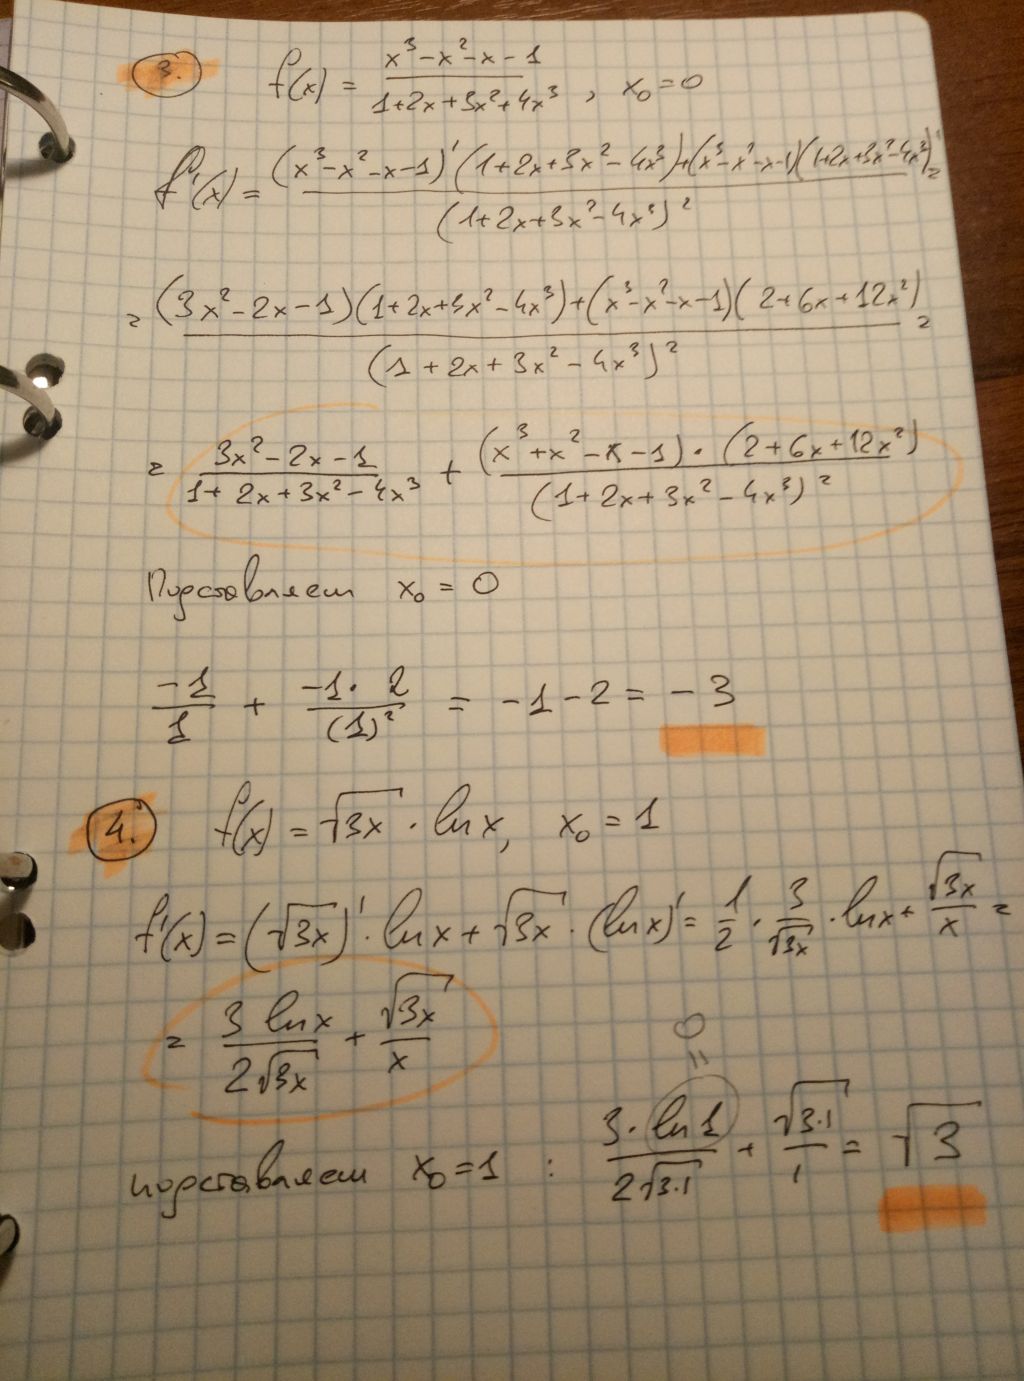 3. f(x) = (x³-x²-x-1)/(1+2x+3x²+4x³), x₀=0
f'(x) = ((x³-x²-x-1)'(1+2x+3x²-4x³)+(x³-x²-x-1)(1+2x+3x²-4x³)')/(1+2x+3x²-4x³)² =
= ((3x²-2x-1)(1+2x+3x²-4x³)+(x³-x²-x-1)(2+6x+12x²))/(1+2x+3x²-4x³)² =
= (3x²-2x-1)/(1+2x+3x²-4x³) + ((x³+x²-x-1)·(2+6x+12x²))/(1+2x+3x²-4x³)²
Подставляем x₀ = 0
-1/1 + (-1·2)/(1)² = -1-2 = -3
4. f(x) = √3x · ln x, x₀ = 1
f'(x) = (√3x)'·ln x + √3x·(ln x)' = 1/2 · 3/√3x · ln x + √3x/x =
= 3 ln x/2√3x + √3x/x
0
=
подставляем x₀=1 : 3·ln 1/2√3·1 + √3·1/1 = √3